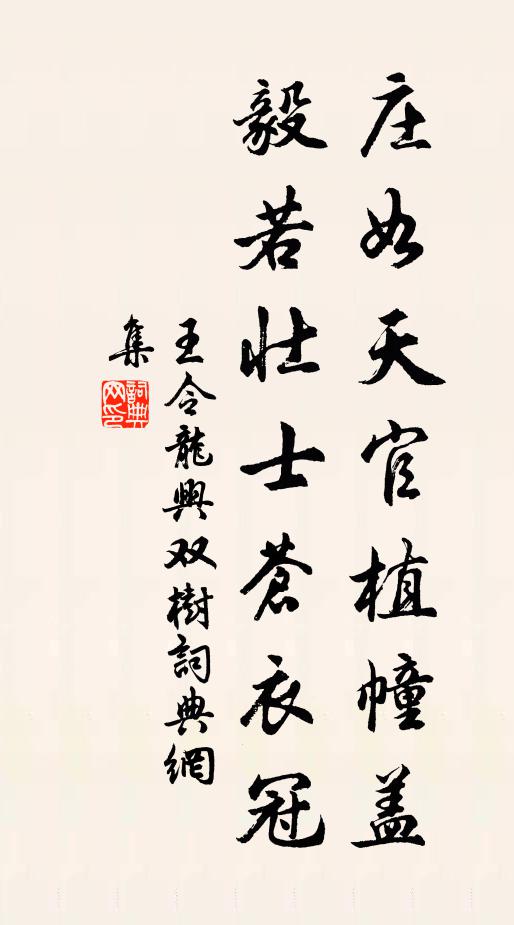 庄如天官植幢盖
毅若壮士苍衣冠
王令龍興双樹詞典網
集
詞典
网印